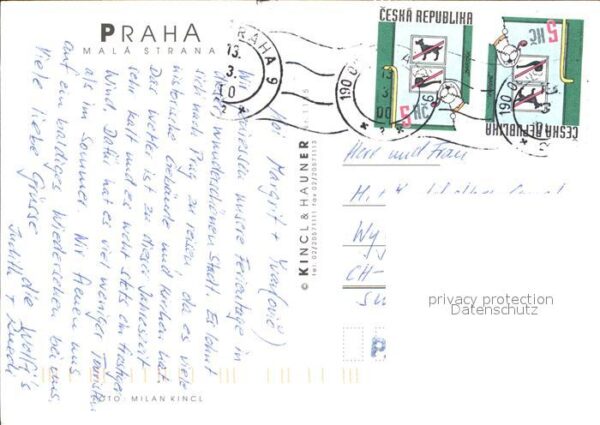 PRAHA
MALÁ STRANA
Hoi Margrit +
Wir geniessen unsere Ferientage in
dieser wunderschönen Stadt. Es lohnt
sich nach Prag zu reisen, da es viele
historische Gebäude und Kirchen hat.
Das Wetter ist zu dieser Jahreszeit
sehr kalt und es weht stets ein frostiger
Wind. Dafür hat es viel weniger Touristen
als im Sommer. Wir freuen uns
auf ein baldiges Wiedersehen bei uns.
Viele liebe Grüsse
die Wolfi's
Judith +
FOTO: MILAN KINCL
© KINCL & HAUNER
tel. 02/20571111 fax 02/20571113
PRAHA 6
13.
3.
ČESKÁ REPUBLIKA
5 Kč
ČESKÁ REPUBLIKA
5 Kč
190 0
190 0
Herr und Frau
CH-
privacy protection
Datenschutz